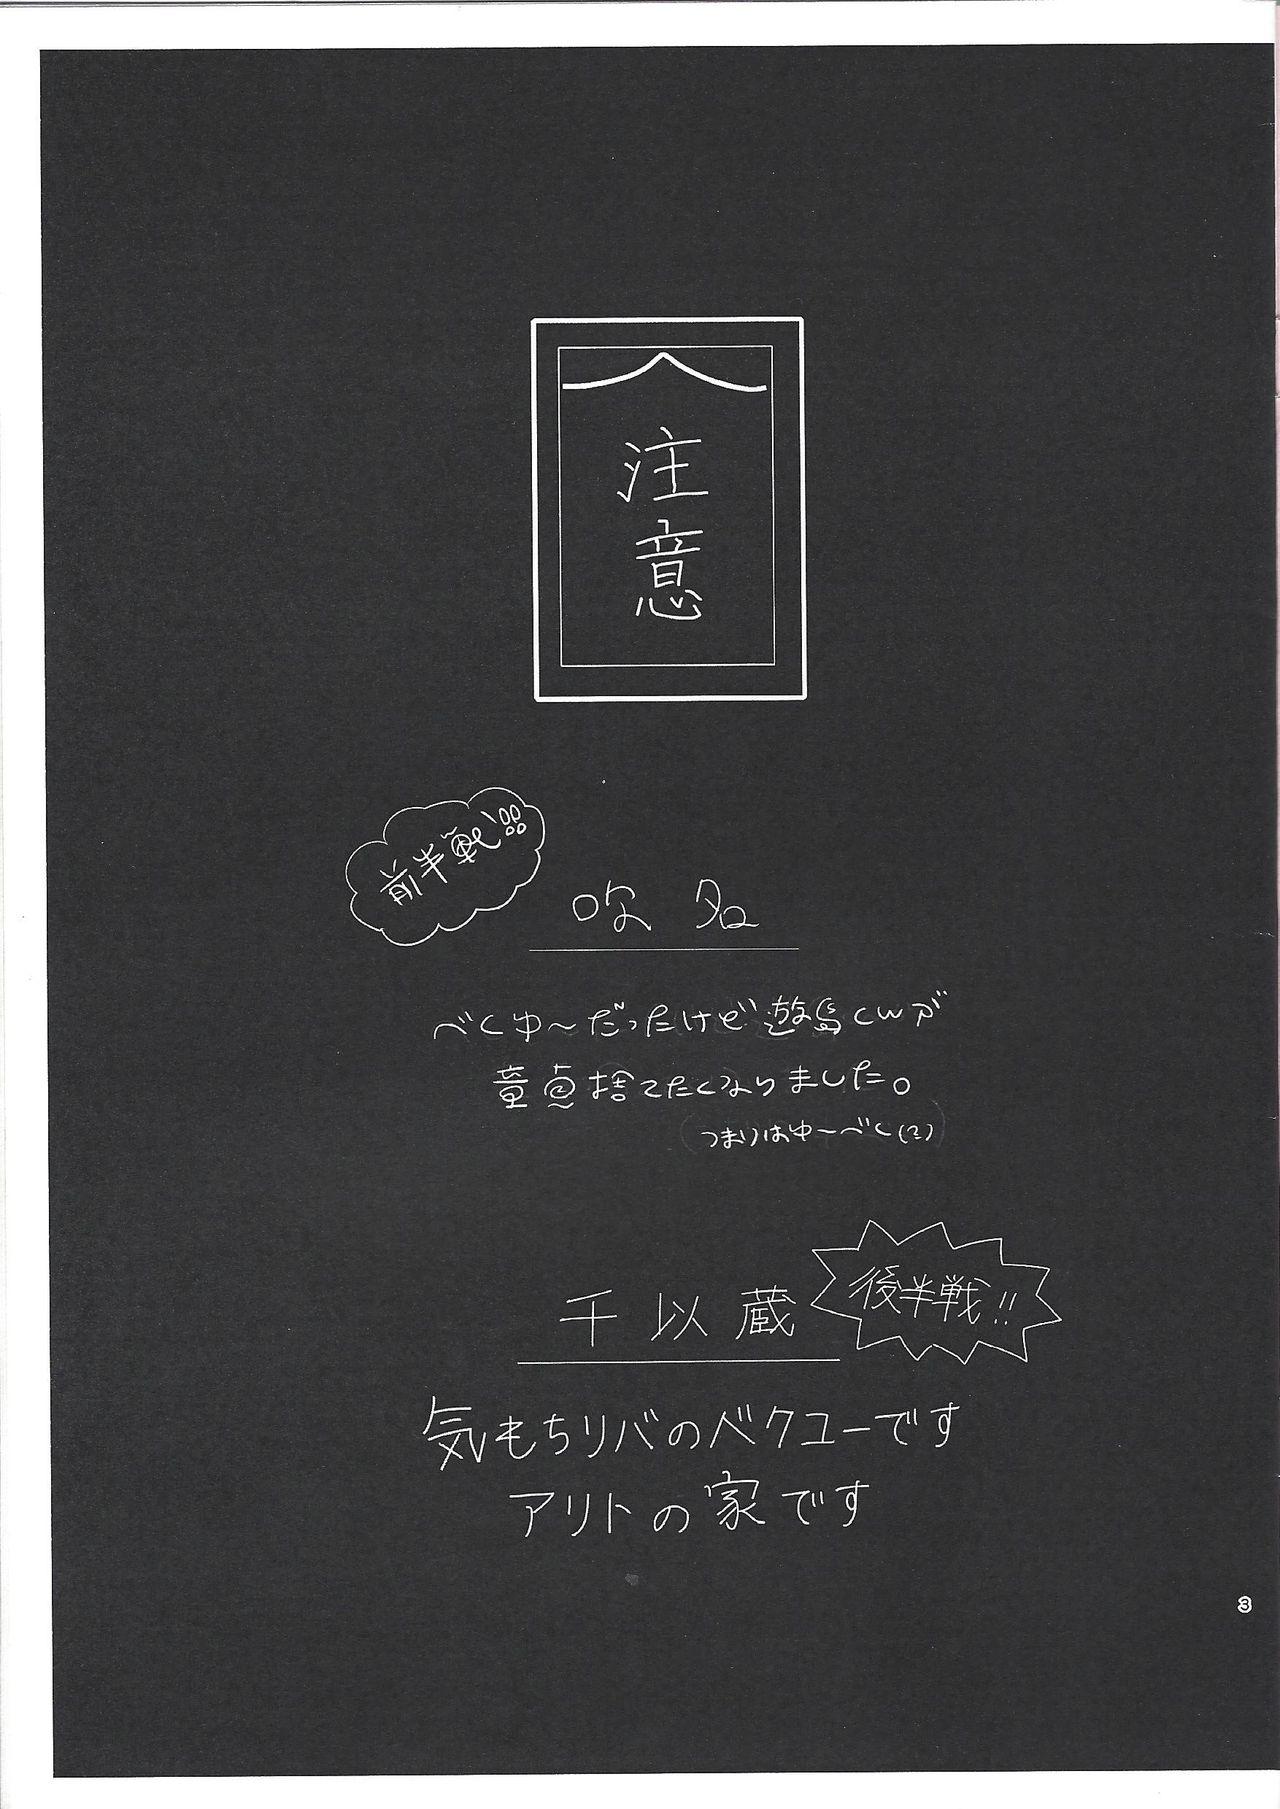 注意
前半戦!!
吹名
べくゆ～だったけど遊馬くんが
童貞捨てたくなりました。
(つまりはゆ～べく(?))
千以蔵
後半戦!!
気もちリバのベクユーです
アリトの家です
3